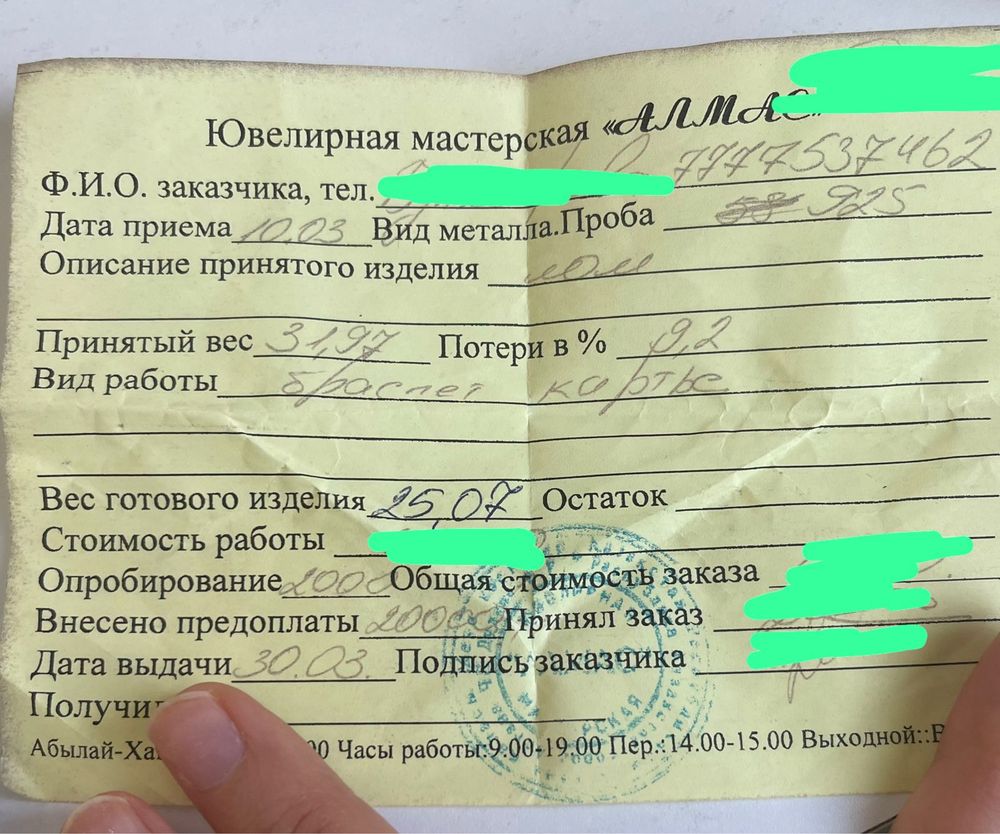 Ювелирная мастерская «АЛМАС»
Ф.И.О. заказчика, тел. 7777537462
Дата приема 10.03 Вид металла.Проба 925
Описание принятого изделия лом
Принятый вес 31,97 Потери в % 9,2
Вид работы браслет картье
Вес готового изделия 25,07 Остаток
Стоимость работы
Опробирование 2000 Общая стоимость заказа
Внесено предоплаты 20000 Принял заказ
Дата выдачи 30.03. Подпись заказчика
Получил
Часы работы:9.00-19.00 Пер.:14.00-15.00 Выходной::